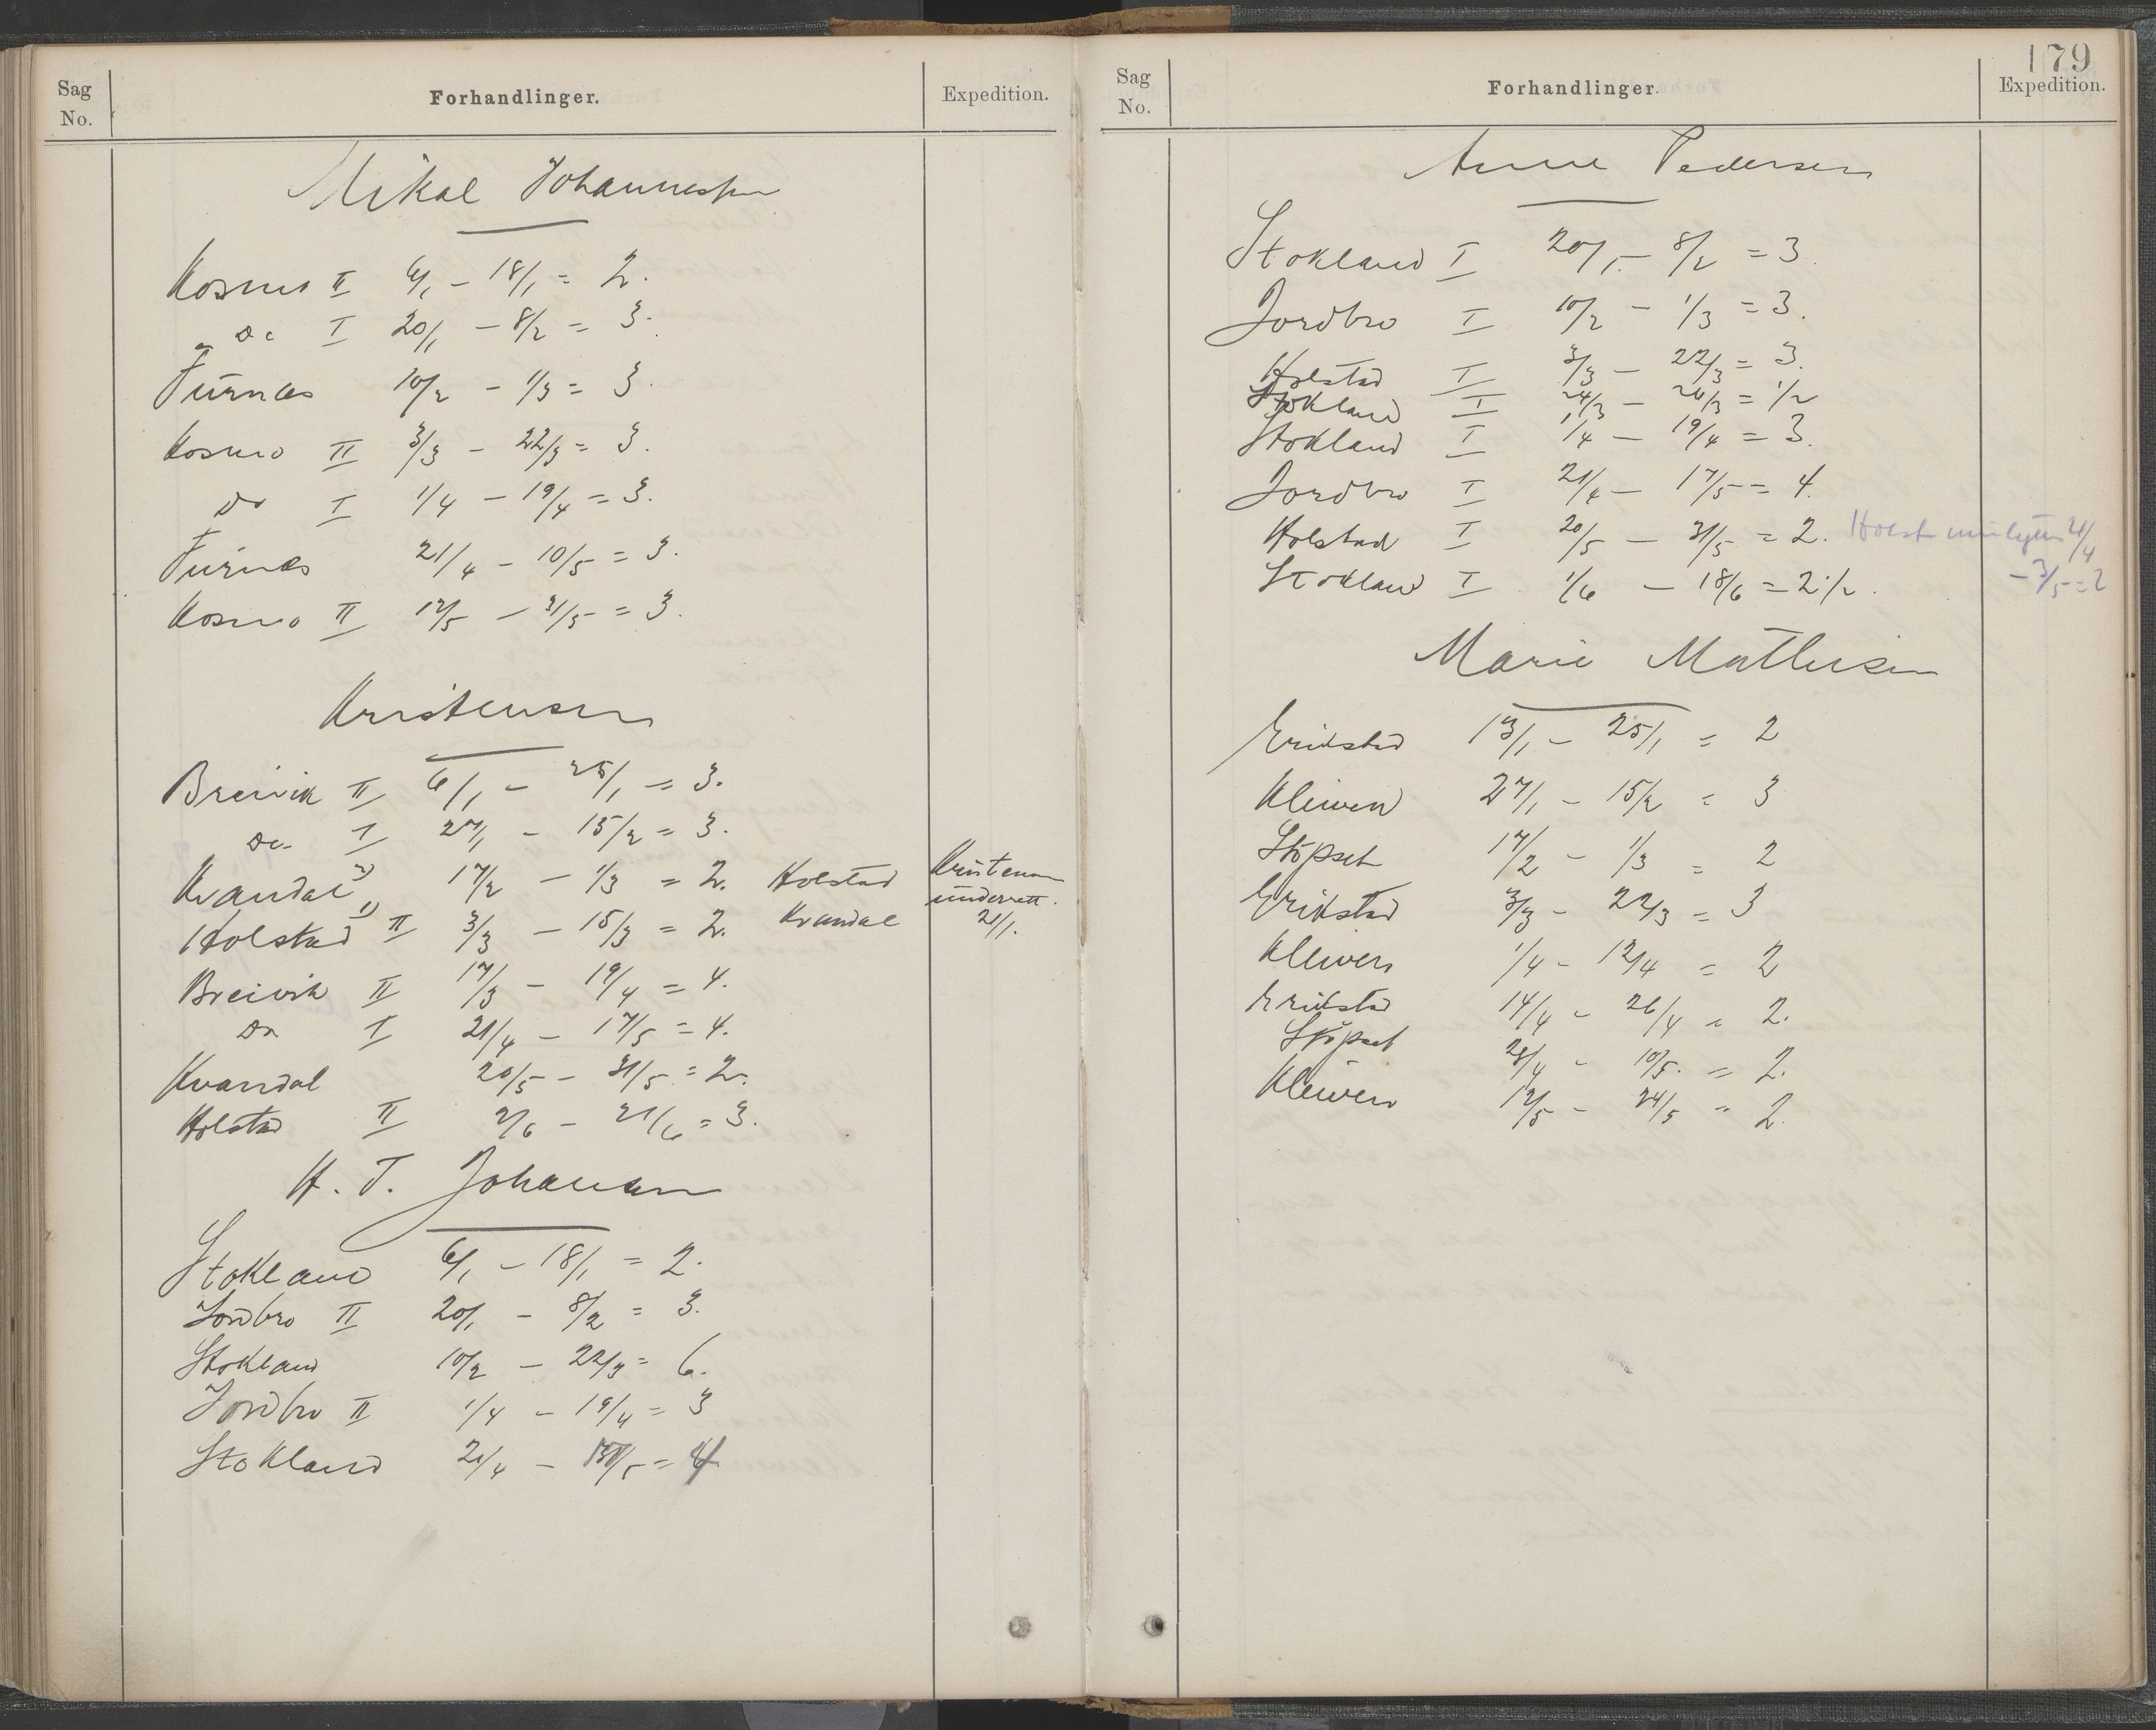 Sag No.
Forhandlinger.
Expedition.
Mikal Johannessen
Kosmo II 6/1 - 18/1 = 2.
" Do I 20/1 - 8/2 = 3.
Furnes 10/2 - 1/3 = 3.
Kosmo II 3/3 - 22/3 = 3.
Do I 1/4 - 19/4 = 3.
Furnes 21/4 - 10/5 = 3.
Kosmo II 12/5 - 31/5 = 3.
Kristensen
Breivik II 6/1 - 25/1 = 3.
Do I 27/1 - 15/2 = 3.
Kvandal 2) 17/2 - 1/3 = 2. Holstad Kristensen
underrett.
Holstad 1) II 3/3 - 15/3 = 2. Kvandal 21/1.
Breivik II 17/3 - 19/4 = 4.
Do I 21/4 - 17/5 = 4.
Kvandal 20/5 - 31/5 = 2.
Holstad II 2/6 - 21/6 = 3.
H. T. Johansen
Stokland 6/1 - 18/1 = 2.
Jordbro II 20/1 - 8/2 = 3.
Stokland 10/2 - 22/3 = 6.
Jordbro II 1/4 - 19/4 = 3
Stokland 21/4 - /5 = 4
179
Sag No.
Forhandlinger.
Expedition.
Anne Pedersen
Stokland I 20/1 - 8/2 = 3.
Jordbro I 10/2 - 1/3 = 3.
Holstad I 3/3 - 22/3 = 3.
Stokland I 24/3 - 26/3 = 1/2
Stokland I 1/4 - 19/4 = 3.
Jordbro I 21/4 - 17/5 = 4.
Holstad I 20/5 - 31/5 = 2. Holst 21/4
Stokland I 1/6 - 18/6 = 2 1/2. - 3/5 = 2
Marie Mathisen
Erikstad 13/1 - 25/1 = 2
Kleiven 27/1 - 15/2 = 3
Støpset 17/2 - 1/3 = 2
Erikstad 3/3 - 22/3 = 3
Kleiven 1/4 - 12/4 = 2
Erikstad 14/4 - 26/4 = 2.
Støpset 28/4 - 10/5. = 2.
Kleiven 12/5 - 24/5 = 2.